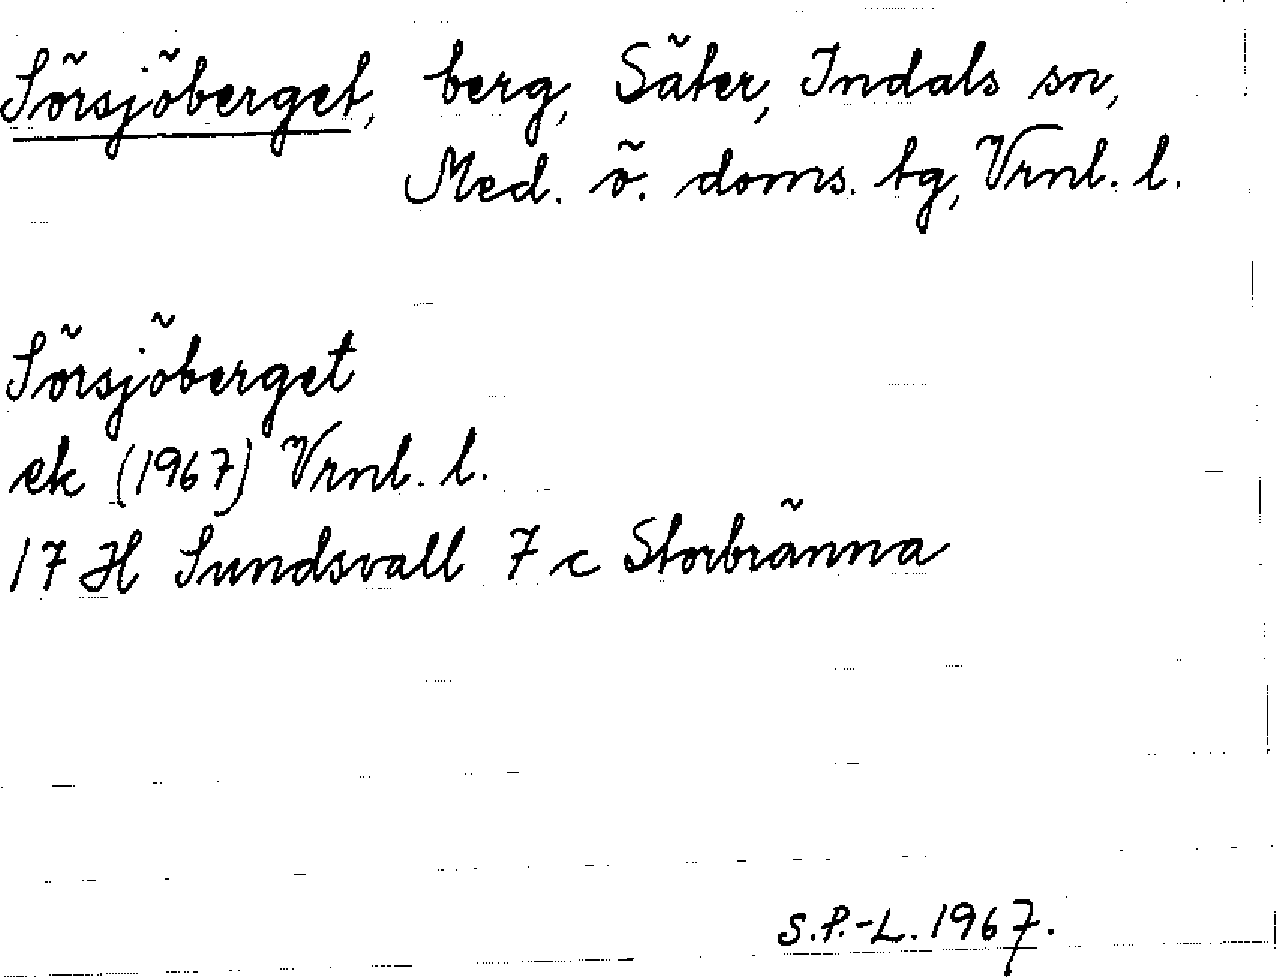 Sörsjöberget, berg, Säter, Indals sn,
Med. ö. doms. tg, Vrnl. l.
Sörsjöberget
ek (1967) Vrnl. l.
17 H Sundsvall 7 c Storbränna
S.P.-L. 1967.